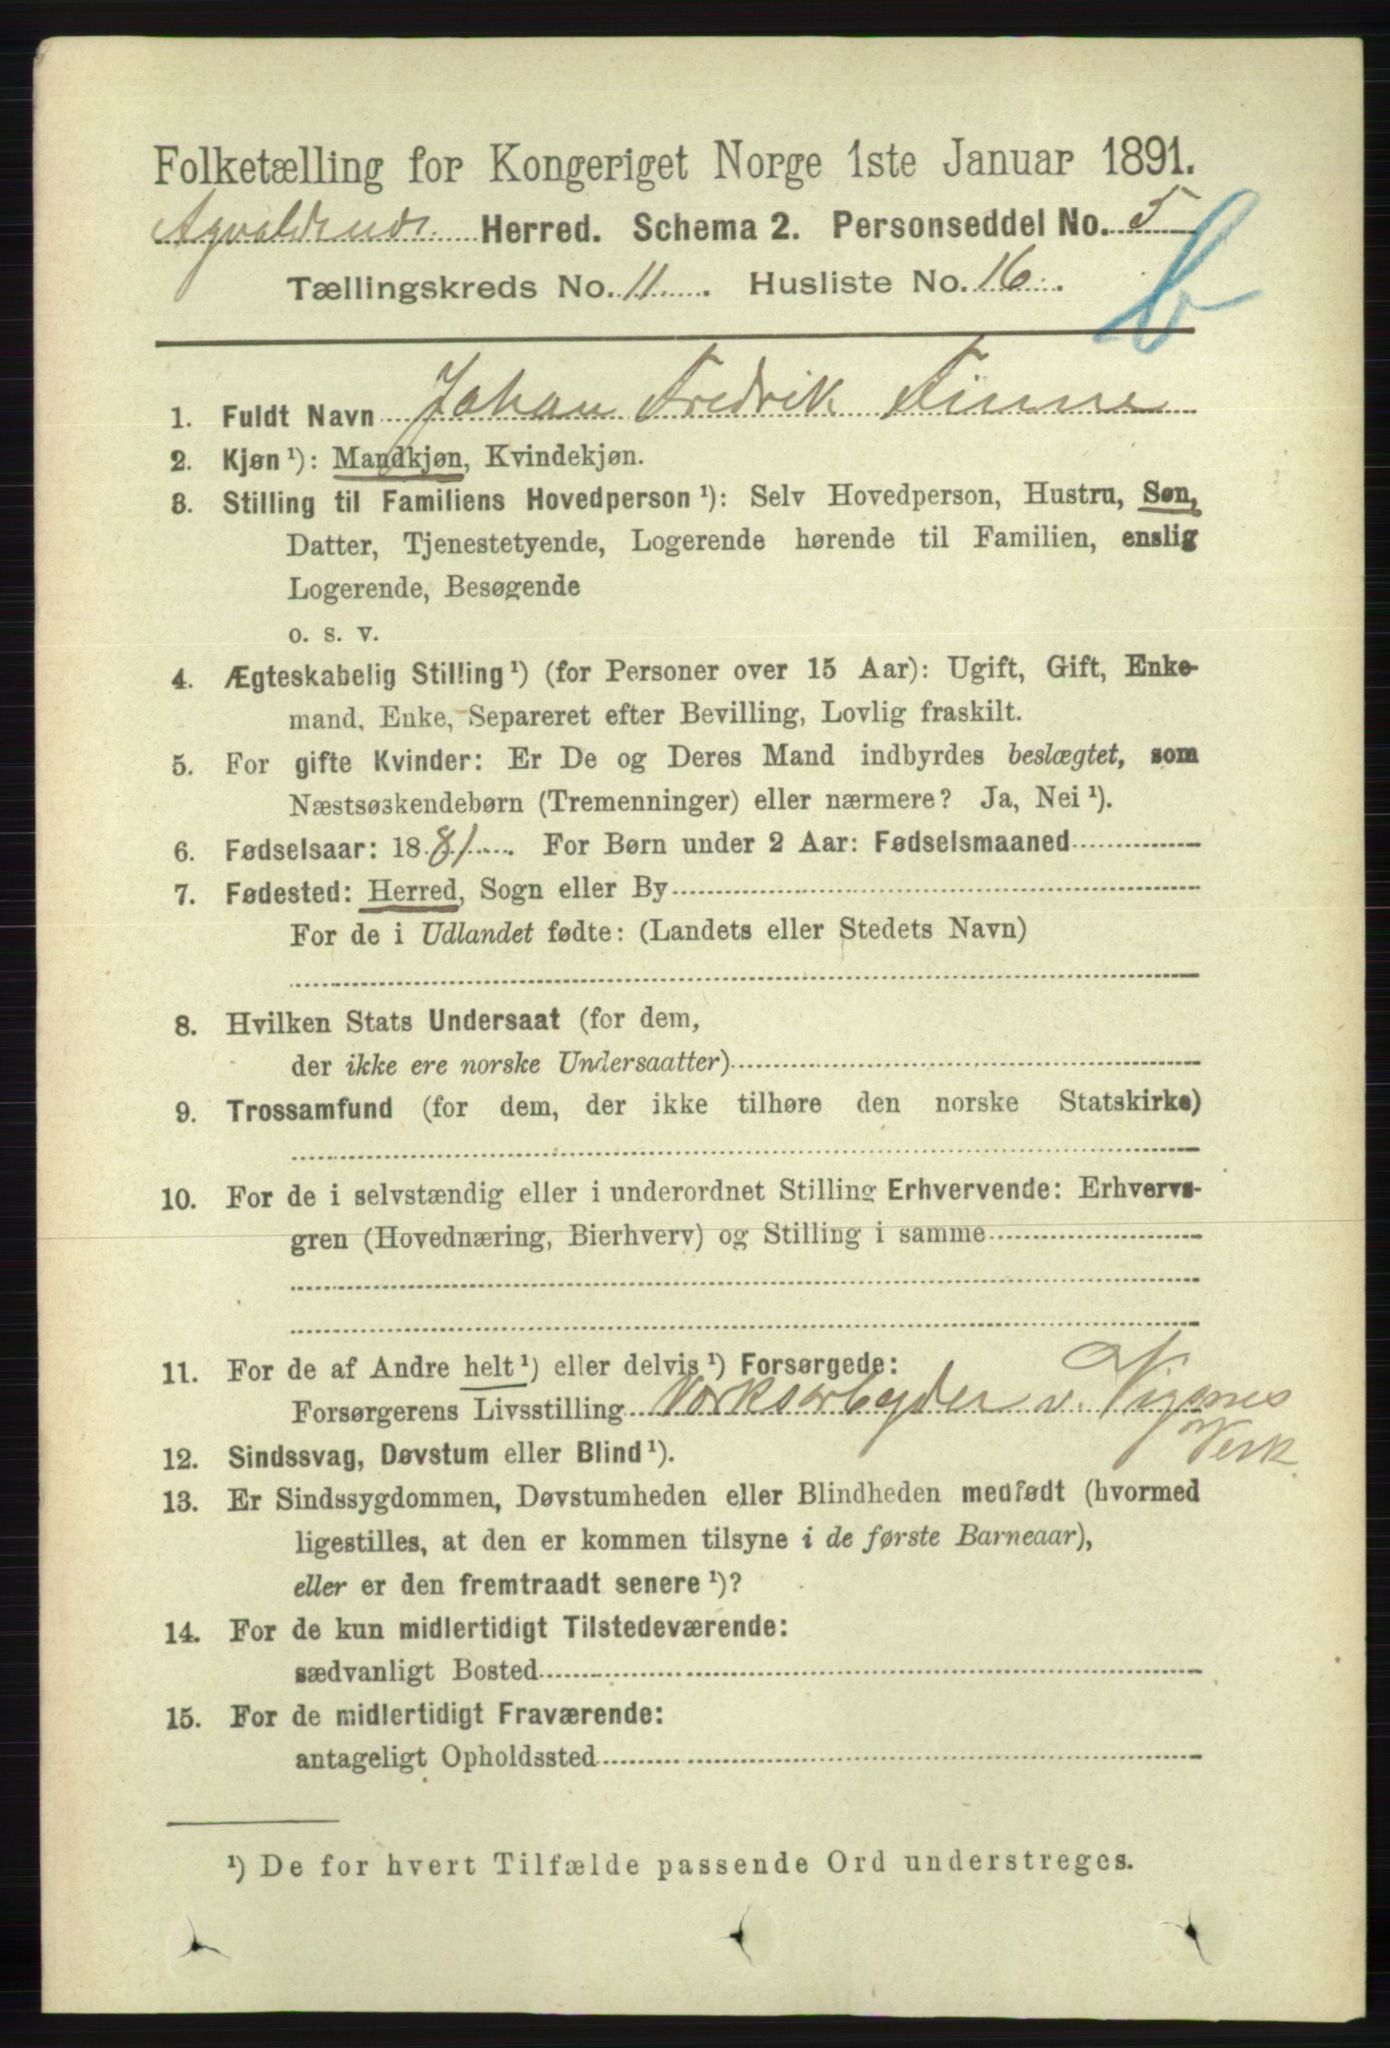 Folketælling for Kongeriget Norge 1ste Januar 1891.
Agvaldsnæs Herred. Schema 2. Personseddel No. 5
Tællingskreds No. 11. Husliste No. 16.
b
1. Fuldt Navn Johan Fredrik Finne
2. Kjøn ¹): Mandkjøn, Kvindekjøn.
3. Stilling til Familiens Hovedperson ¹): Selv Hovedperson, Hustru, Søn,
Datter, Tjenestetyende, Logerende hørende til Familien, enslig
Logerende, Besøgende
o. s. v.
4. Ægteskabelig Stilling ¹) (for Personer over 15 Aar): Ugift, Gift, Enke-
mand, Enke, Separeret efter Bevilling, Lovlig fraskilt.
5. For gifte Kvinder: Er De og Deres Mand indbyrdes beslægtet, som
Næstsøskendebørn (Tremenninger) eller nærmere? Ja, Nei ¹).
6. Fødselsaar: 1881. For Børn under 2 Aar: Fødselsmaaned
7. Fødested: Herred, Sogn eller By
For de i Udlandet fødte: (Landets eller Stedets Navn)
8. Hvilken Stats Undersaat (for dem,
der ikke ere norske Undersaatter)
9. Trossamfund (for dem, der ikke tilhøre den norske Statskirke)
10. For de i selvstændig eller i underordnet Stilling Erhvervende: Erhvervs-
gren (Hovednæring, Bierhverv) og Stilling i samme
11. For de af Andre helt ¹) eller delvis ¹) Forsørgede:
Forsørgerens Livsstilling Værksarbejder v. Vigsnes
Verk
12. Sindssvag, Døvstum eller Blind ¹).
13. Er Sindssygdommen, Døvstumheden eller Blindheden medfødt (hvormed
ligestilles, at den er kommen tilsyne i de første Barneaar),
eller er den fremtraadt senere ¹)?
14. For de kun midlertidigt Tilstedeværende:
sædvanligt Bosted
15. For de midlertidigt Fraværende:
antageligt Opholdssted
¹) De for hvert Tilfælde passende Ord understreges.